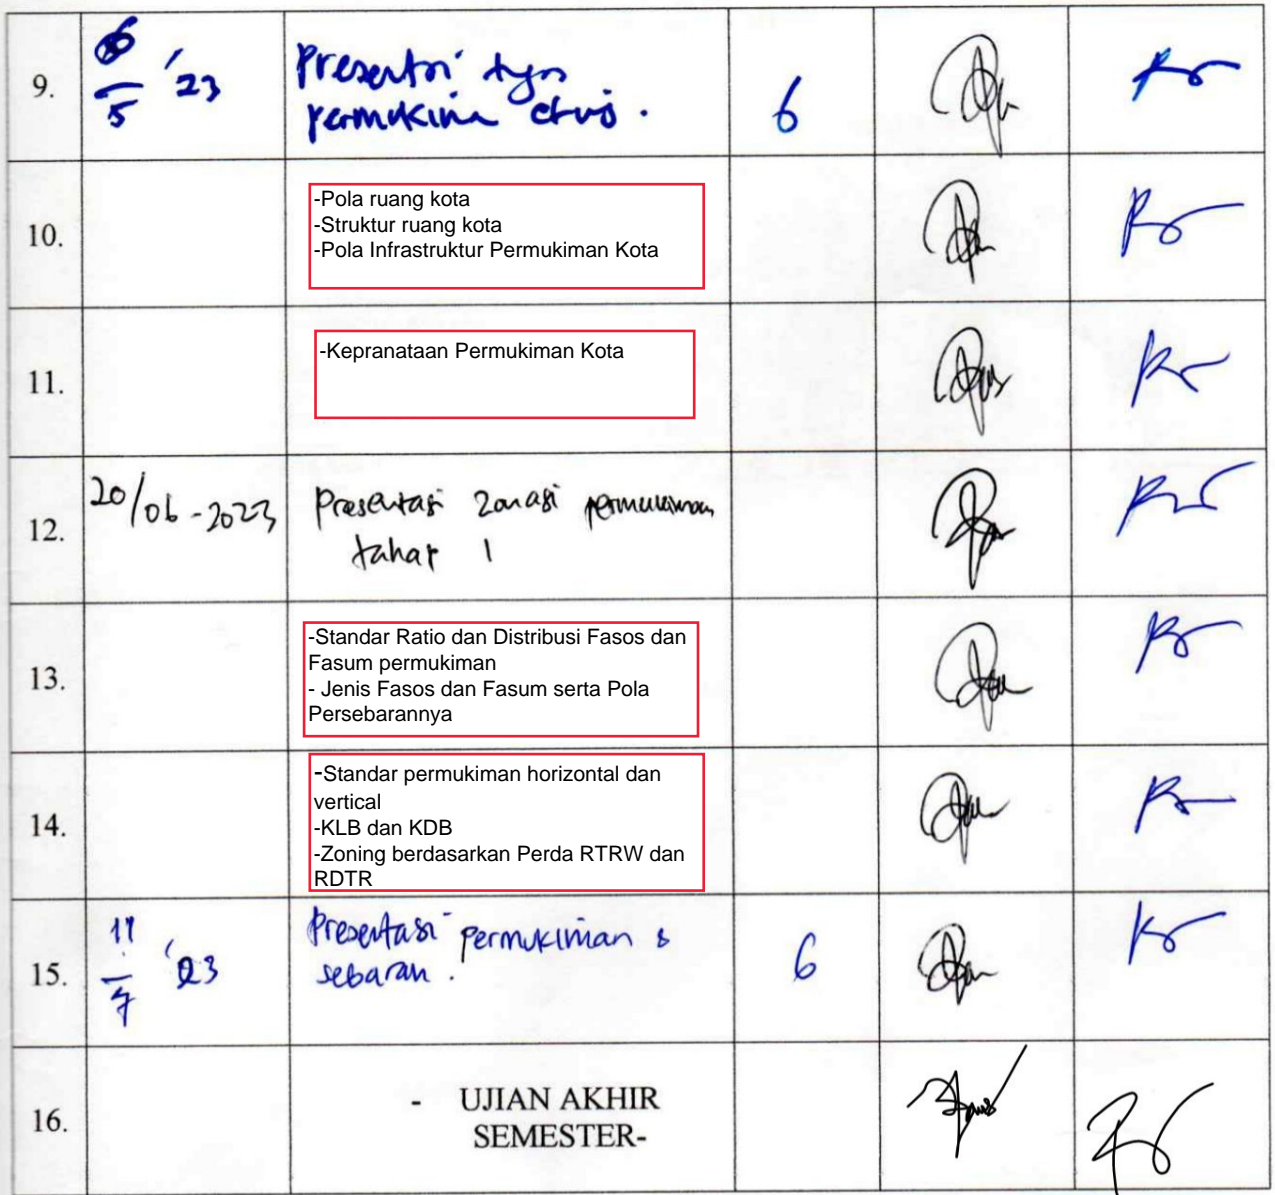 9.
5 '23
Presentasi tugas
permukima etnis.
6
10.
-Pola ruang kota
-Struktur ruang kota
-Pola Infrastruktur Permukiman Kota
11.
-Kepranataan Permukiman Kota
12.
20/06-2023
Presentasi zonasi permukiman
tahap 1
13.
-Standar Ratio dan Distribusi Fasos dan
Fasum permukiman
- Jenis Fasos dan Fasum serta Pola
Persebarannya
14.
-Standar permukiman horizontal dan
vertical
-KLB dan KDB
-Zoning berdasarkan Perda RTRW dan
RDTR
15.
11
7 '23
Presentasi permukiman &
sebaran.
6
16.
- UJIAN AKHIR
SEMESTER-